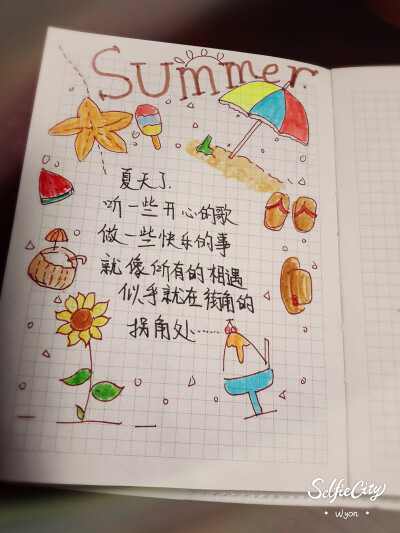 Summer
夏天了.
听一些开心的歌
做一些快乐的事
就像所有的相遇
似乎就在街角的
拐角处……
SelfieCity
• Wyon •